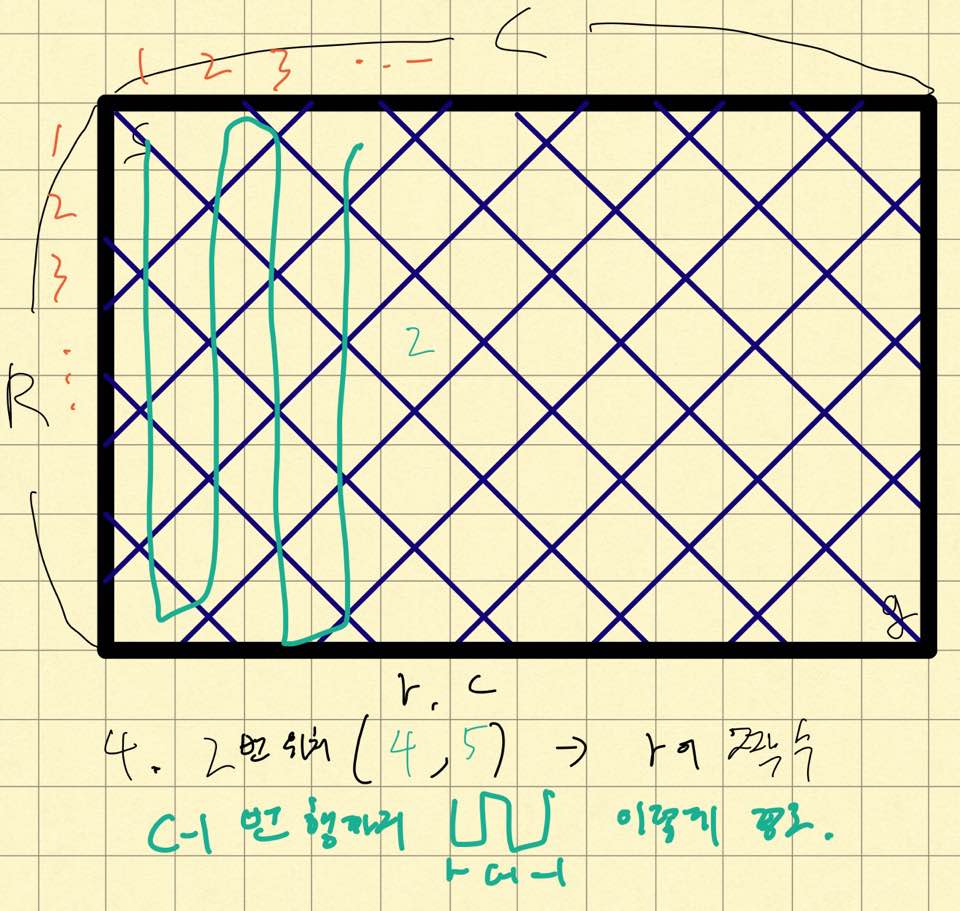 C
1 2 3 ...
1
2
3
⋮
R
S
2
g
r, c
4. 2번 위치 (4, 5) → r이 짝수
C-1 번 행까지 이렇게 평로.